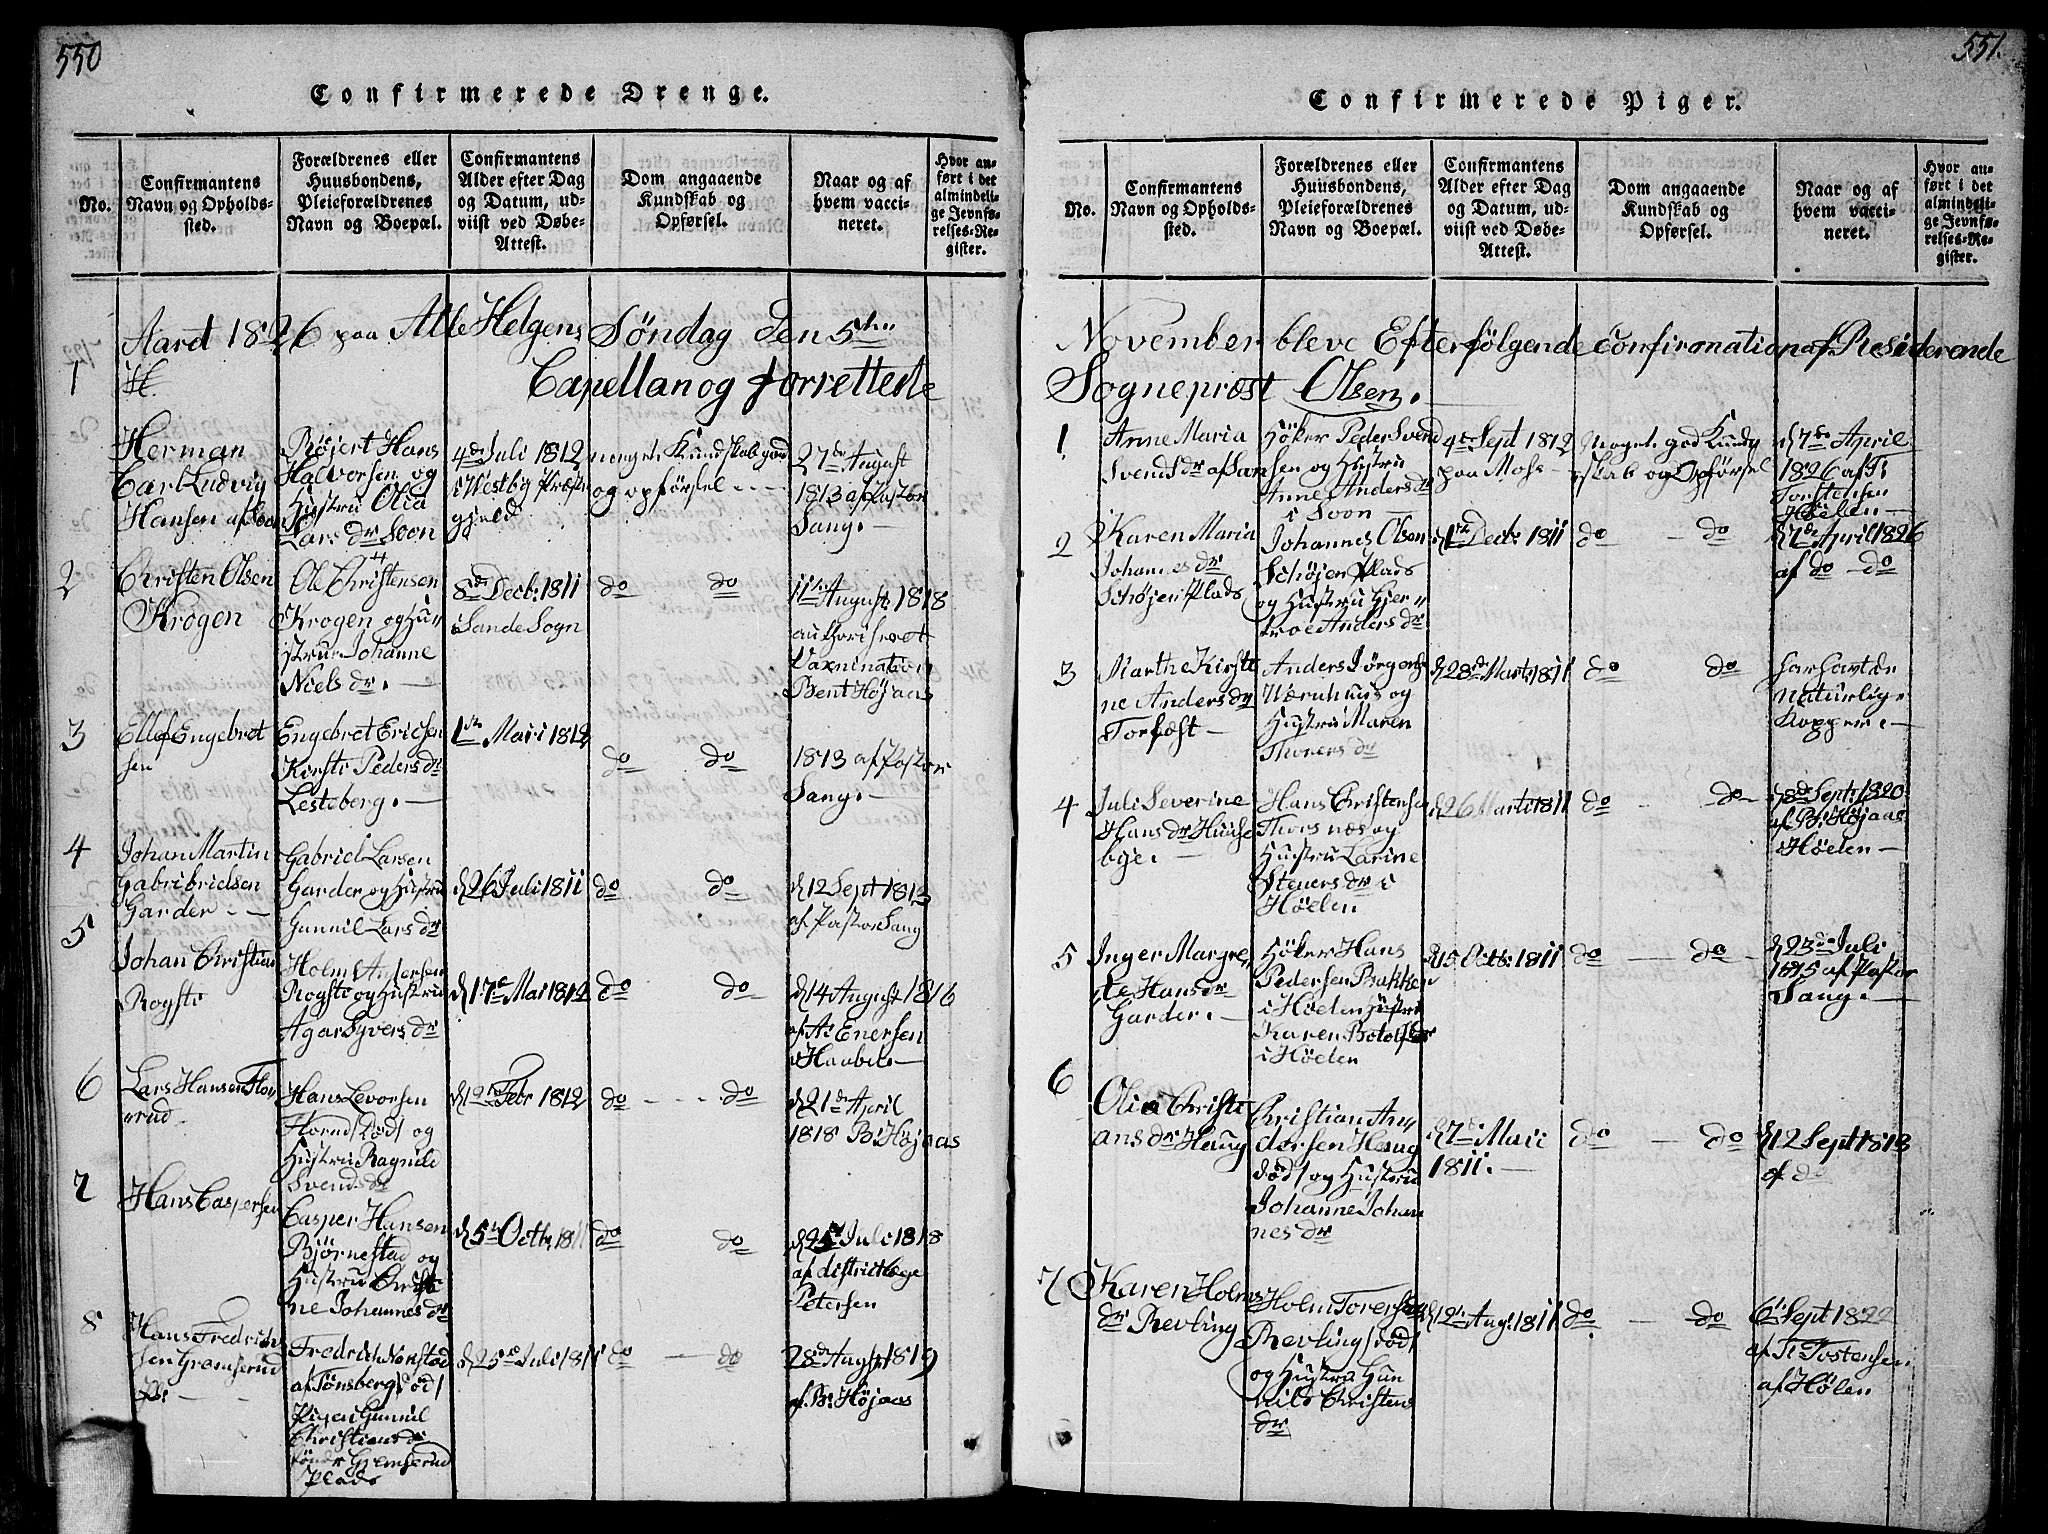 550
Confirmerede Drenge.
No.
Confirmantens
Navn og Opholds-
sted.
Forældrenes eller
Huusbondens,
Pleieforældrenes
Navn og Boepæl.
Confirmantens
Alder efter Dag
og Datum, ud-
viist ved Døbe-
Attest.
Dom angaaende
Kundskab og
Opførsel.
Naar og af
hvem vacci-
neret.
Hvor an-
ført i det
almindeli-
ge Jevnfø-
relses-Re-
gister.
Aaret 1826 paa Alle Helgens Søndag den 5te
Capellan og forrettede
1
Herman
Carl Ludvig
Hansen af Soon
Røjert Hans
Halvorsen og
Hustru Olia
Lars dr Soon
4de Juli 1812
i Westby Præste
gjeld
noget Kundskab god
og opførsel
27de August
1813 af Pastor
Sang.
2
Christen Olsen
Krogen
Ole Christensen
Krogen og Hu
strue Johanne
Niels dr.
8de Decb: 1811
i Sande Sogn
do do
11te August 1818
authoriseret
Vaxnination
Bent Højaas
3
Ellef Engebret
sen
Engebret Ericsen
Kirsti Peders dr
Lesteberg.
1te Maii 1812
do do
1813 af Pastor
Sang.
4
Johan Martin
Gabribrielsen
Garder
Gabriel Larsen
Garder og Hustru
Gunnil Lars dr
d 26 Juli 1811
do do
d 12 Sept 1813
af Pastor Sang
5
Johan Christian
Røgsti
Holm Andersen
Røgsti og Hustru
Agar Syvers dr
d 17e Mai 1812
do do
d 14 August 1816
af A: Enersen
i Haabel.
6
Lars Hansen Hor
rud
Hans Levorsen
Horrud død og
Hustru Ragnild
Svends dr
d 12te Febr 1812
do do
d 21de April
1818 B: Højaas
7
Hans Caspersen
Casper Hansen
Bjørnestad og
Hustru Christi
ne Johannes dr
d 5te Octb: 1811
do do
d 25de Juli 1818
af districtlæge
Petersen
8
Hans Fredrich
sen Gremserud
Fredrich Nonstad
af Tønsberg død
Pigen Gunnil
Christians dr
Gremserud
Plads
d 25de Juli 1811
do do
28de Augst 1819
af B: Højaas
551.
Confirmerede Piger.
No.
Confirmantens
Navn og Opholds-
sted.
Forældrenes eller
Huusbondens,
Pleieforældrenes
Navn og Boepæl.
Confirmantens
Alder efter Dag
og Datum, ud-
viist ved Døbe-
Attest.
Dom angaaende
Kundskab og
Opførsel.
Naar og af
hvem vacci-
neret.
Hvor an-
ført i det
almindeli-
ge Jevnfø-
relses-Re-
gister.
November bleve Efterfølgende confirmation af Residerende
Sogneprøst Olsen.
1
Anne Maria
Svends dr af San
Höker Peder Svend
sen og Hustru
Anne Anders dr
i Soon
9te Sept 1812
paa Moss
Noget god Kund
skab og Opførsel
d 7de April
1826 af T:
Torstensen
Høelen
2
Karen Maria
Johannes dr
Schøjen Plads
Johannes Olsen
Schøjen Plads
og Hustru Hjer
troe Anders dr
d 1te Decb: 1811
do do
d 7de April 1826
af do do
3
Marthe Kirsti
ne Anders dr
Torfæst
Anders Jørgens
Wærnhuus og
Hustru Maren
Thorers dr
d 28de Marti 1811
do do
har havt de
naturlige
Kopper.
4
Juli Severine
Hans dr Huuse
bye.
Hans Christensen
Thors næs og
Hustru Larine
Steners dr i
Høelen
d 26 Marti 1811
do do
d 8de Sept: 1820
af B: Højaas
i Høelen
5
Inger Margre
te Hans dr
Garder.
Höker Hans
Pedersen Bakke
i Høelen Hustru
Karen Botolfs dr
i Høelen
d 15 Octb: 1811
do do
d 23de Juli
1815 af Pastor
Sang.
6
Olia Christi
ans dr Haug
Christian An
dersen Haug
død og Hustru
Johanne Johan
nes dr
d 7de Maii
1811.
do do
d 12 Sept 1813
af do
7
Karen Holms
dr Revling
Holm Torersen
Revling død
og Hustru Gun
nild Christens
dr
d 12te Aug: 1811
do do
6te Sept 1822
af T: Tostensen
af Hølen